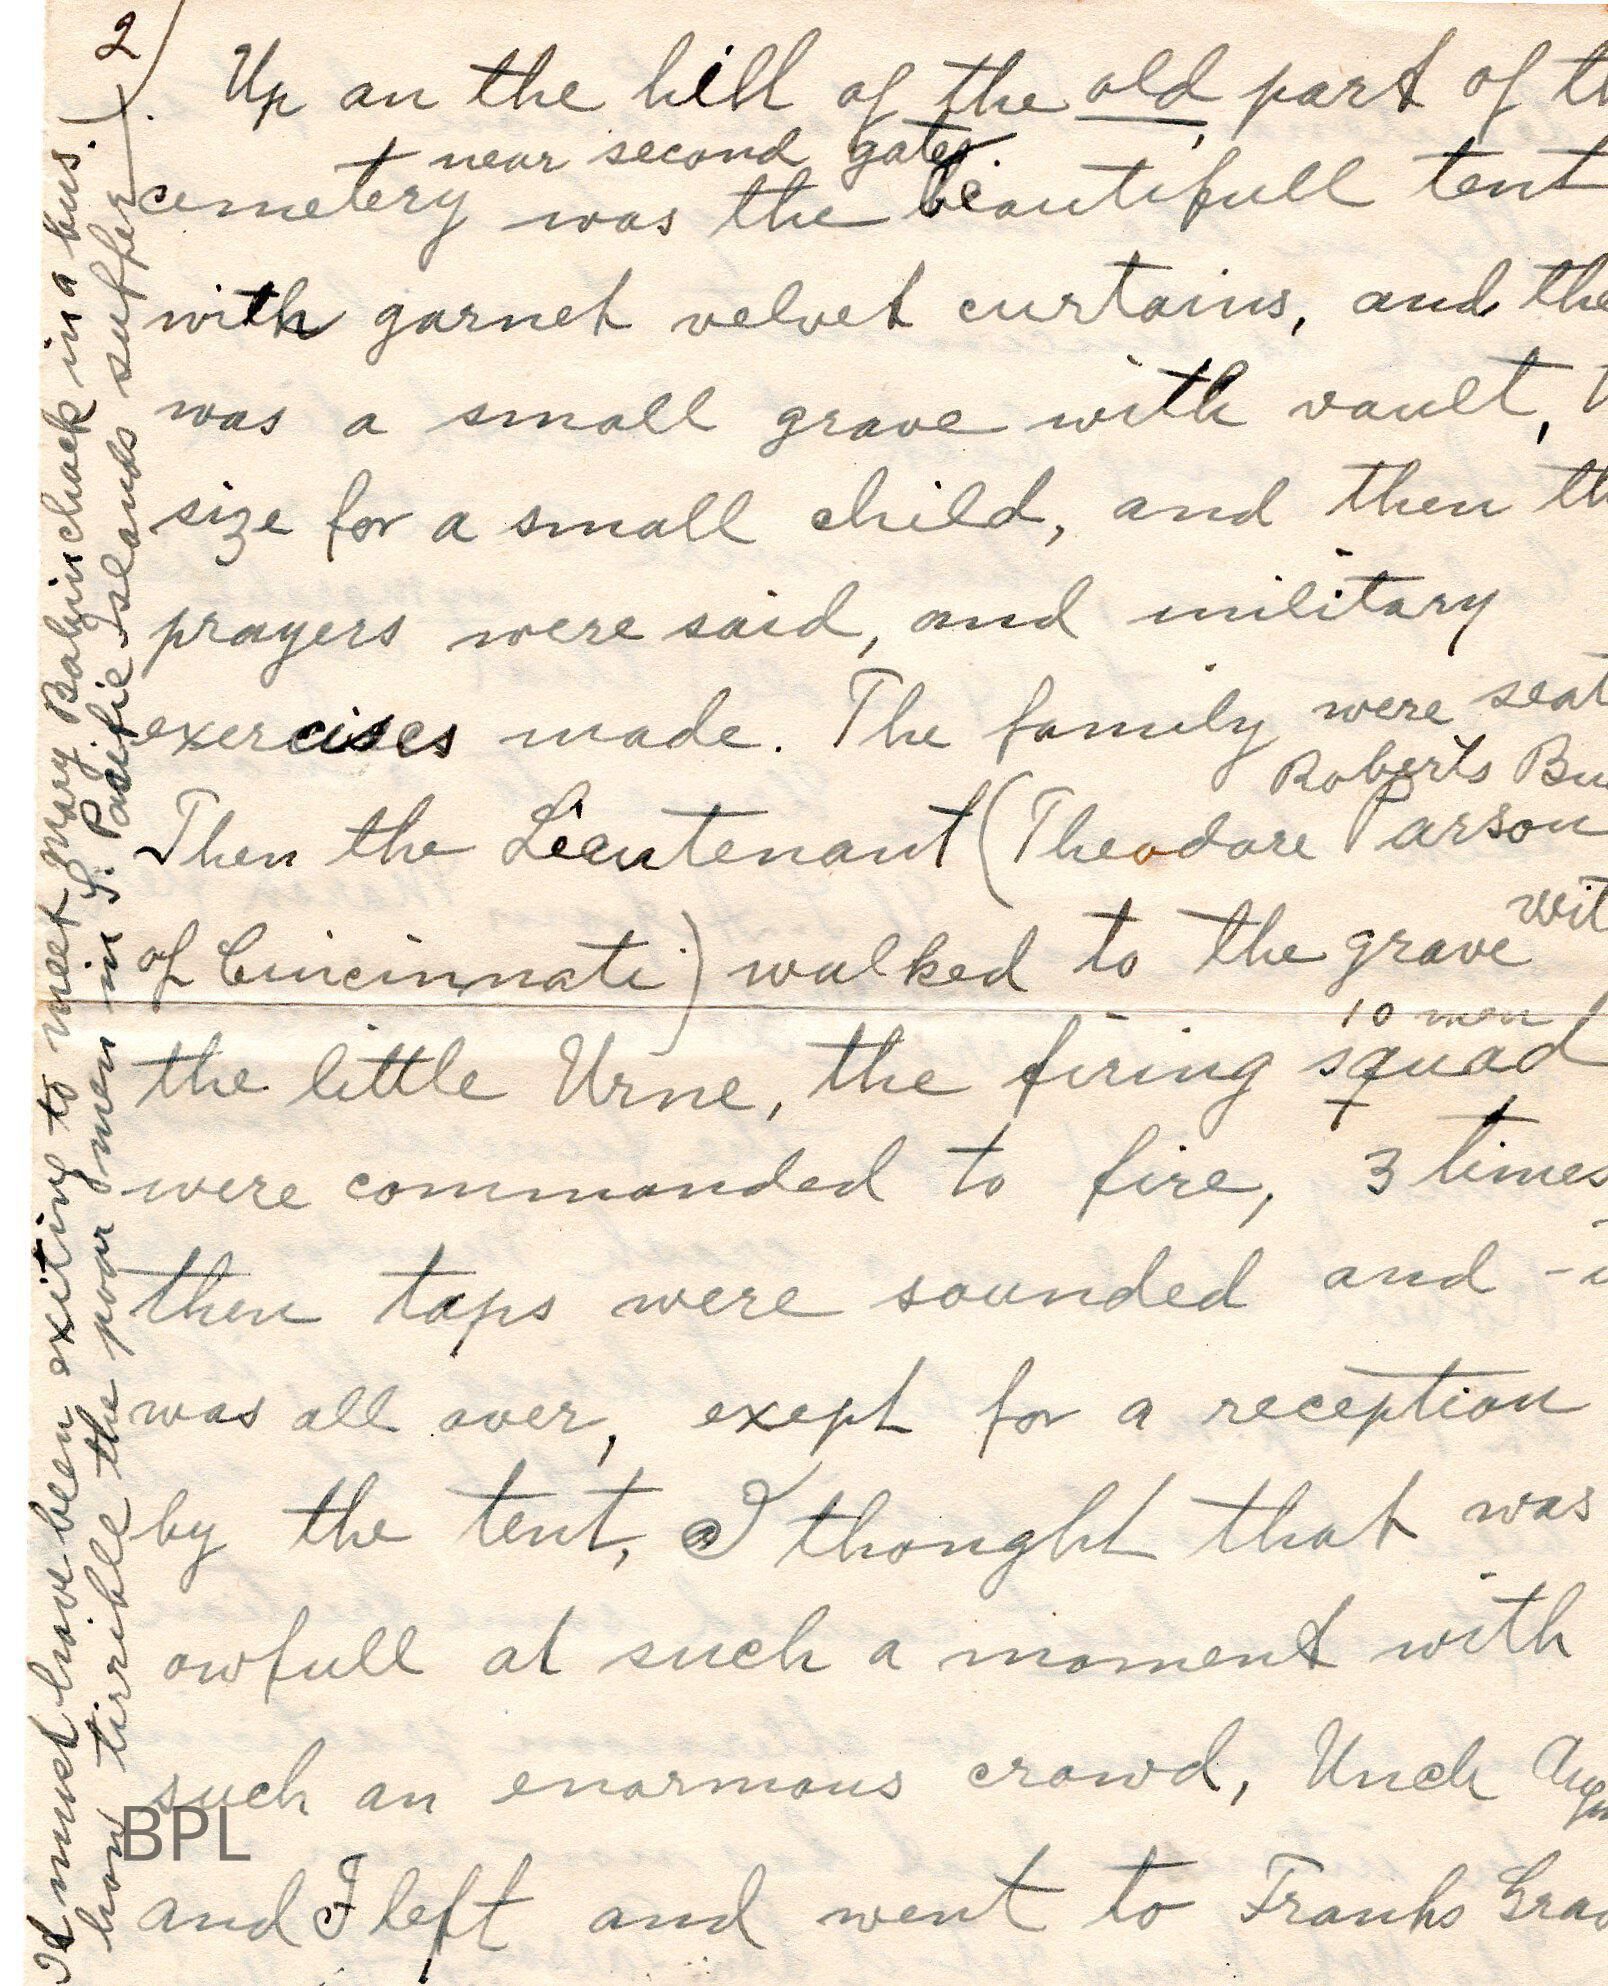 2)
Up on the hill of the old part of th
near second gates.
cemetery was the beautifull tent
with garnet velvet curtains, and the
was a small grave with vault,
size for a small child, and then th
prayers were said, and military
exercises made. The family were seat
Roberts Bu
Then the Lieutenant (Theodore Parson
of Cincinnati) walked to the grave wit
10 men
the little Urne, the firing squad
were commanded to fire, 3 times
then taps were sounded and - i
was all over, exept for a reception
by the tent, I thought that was
awfull at such a moment with
such an enormous crowd, Uncle Augu
and I left and went to Franks Grav
It must have been exiting to meet Mary Babinchack in a bus.)
how tirrible the poor men in S. Pasific Islands suffer
BPL